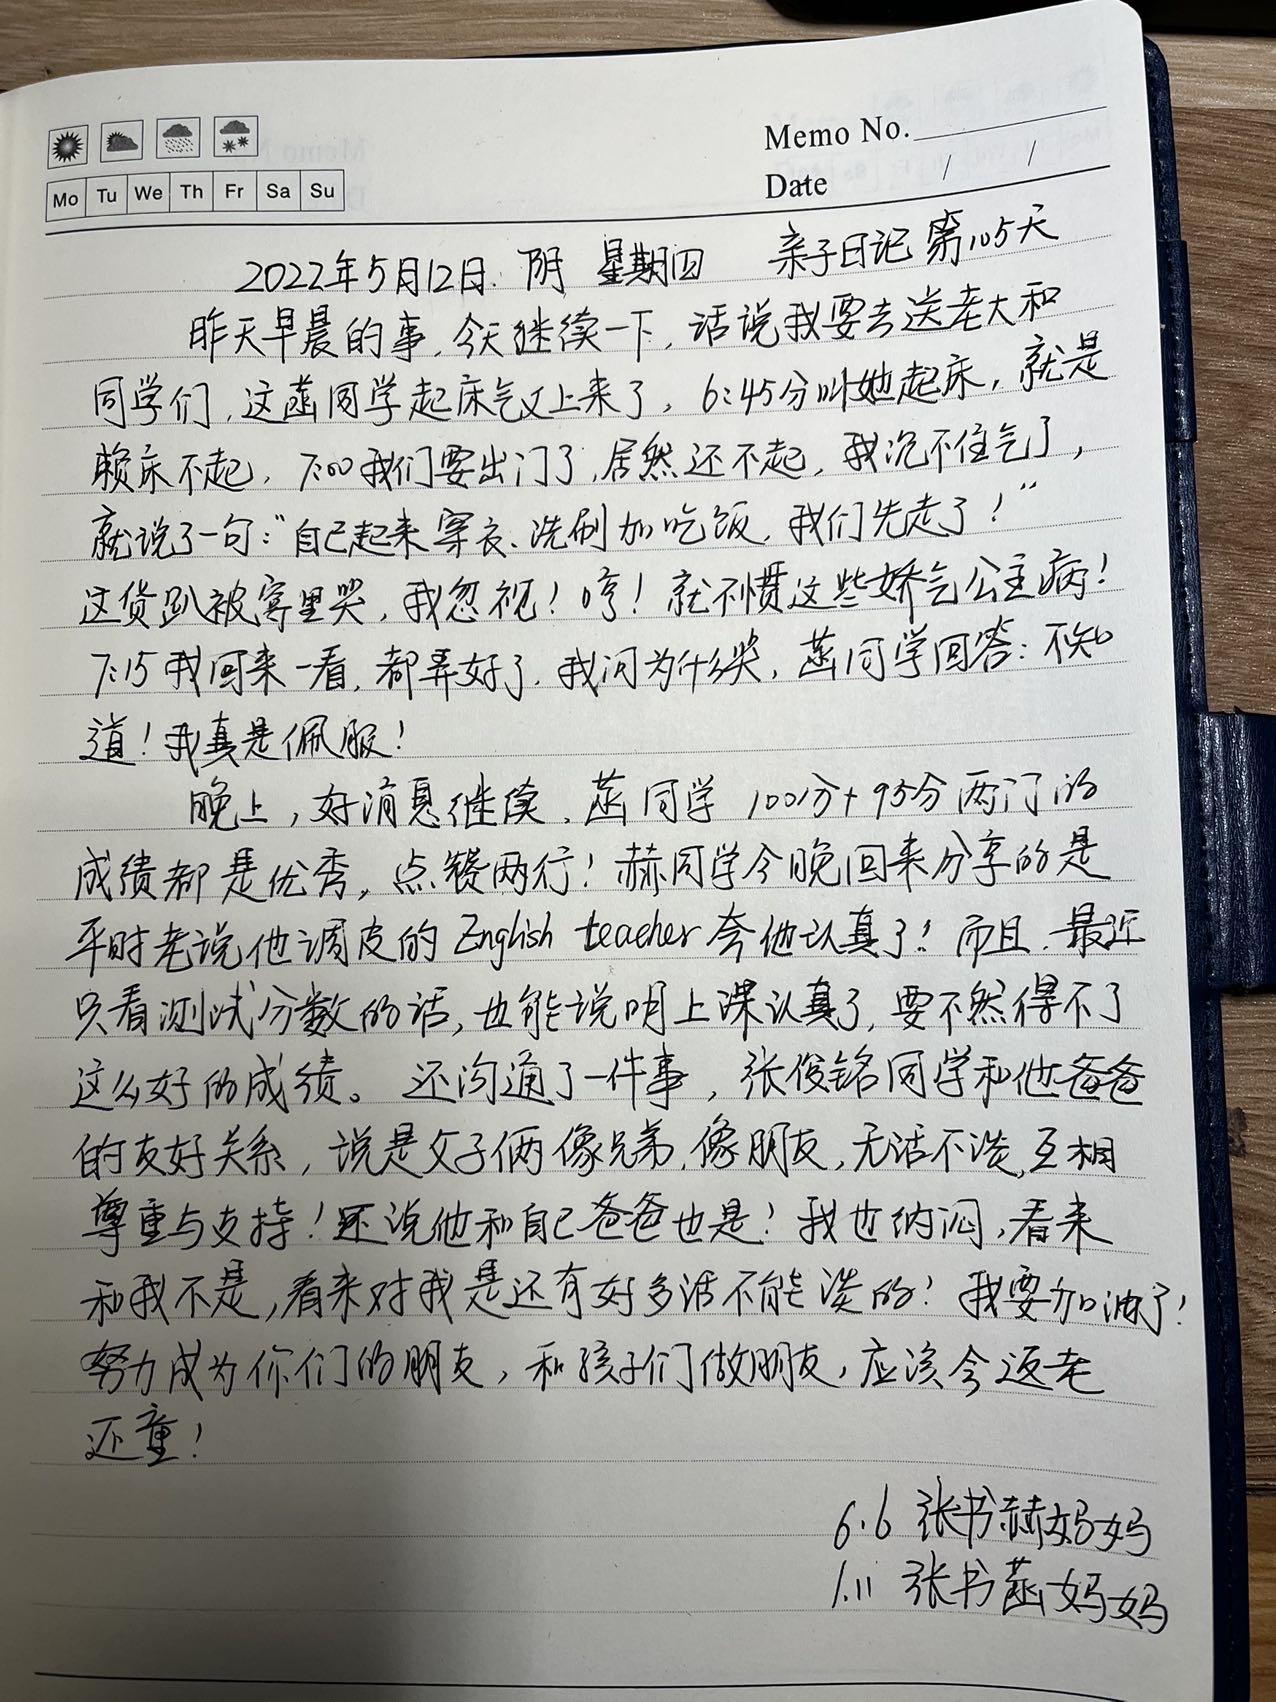 Memo No.
Mo Tu We Th Fr Sa Su
Date / /
2022年5月12日. 阴 星期四 亲子日记第105天
昨天早晨的事,今天继续一下,话说我要去送老大和
同学们,这菡同学起床气又上来了,6:45分叫她起床,就是
赖床不起,7:00我们要出门了,居然还不起,我沉不住气了,
就说了一句:“自己起来穿衣、洗刷加吃饭,我们先走了!”
这货趴被窝里哭,我忽视!哼!就不惯这些娇气公主病!
7:15我回来一看,都弄好了,我问为什么哭,菡同学回答:不知
道!我真是佩服!
晚上,好消息继续,菡同学 100分+95分两门的
成绩都是优秀,点赞两行!赫同学今晚回来分享的是
平时老说他调皮的English teacher夸他认真了!而且,最近
只看测试分数的话,也能说明上课认真了,要不然得不了
这么好的成绩。还沟通了一件事,张俊铭同学和他爸爸
的友好关系,说是父子俩像兄弟,像朋友,无话不谈,互相
尊重与支持!还说他和自己爸爸也是!我也纳闷,看来
和我不是,看来对我是还有好多话不能谈的!我要加油了!
努力成为你们的朋友,和孩子们做朋友,应该会返老
还童!
6.6 张书赫妈妈
1.11 张书菡妈妈